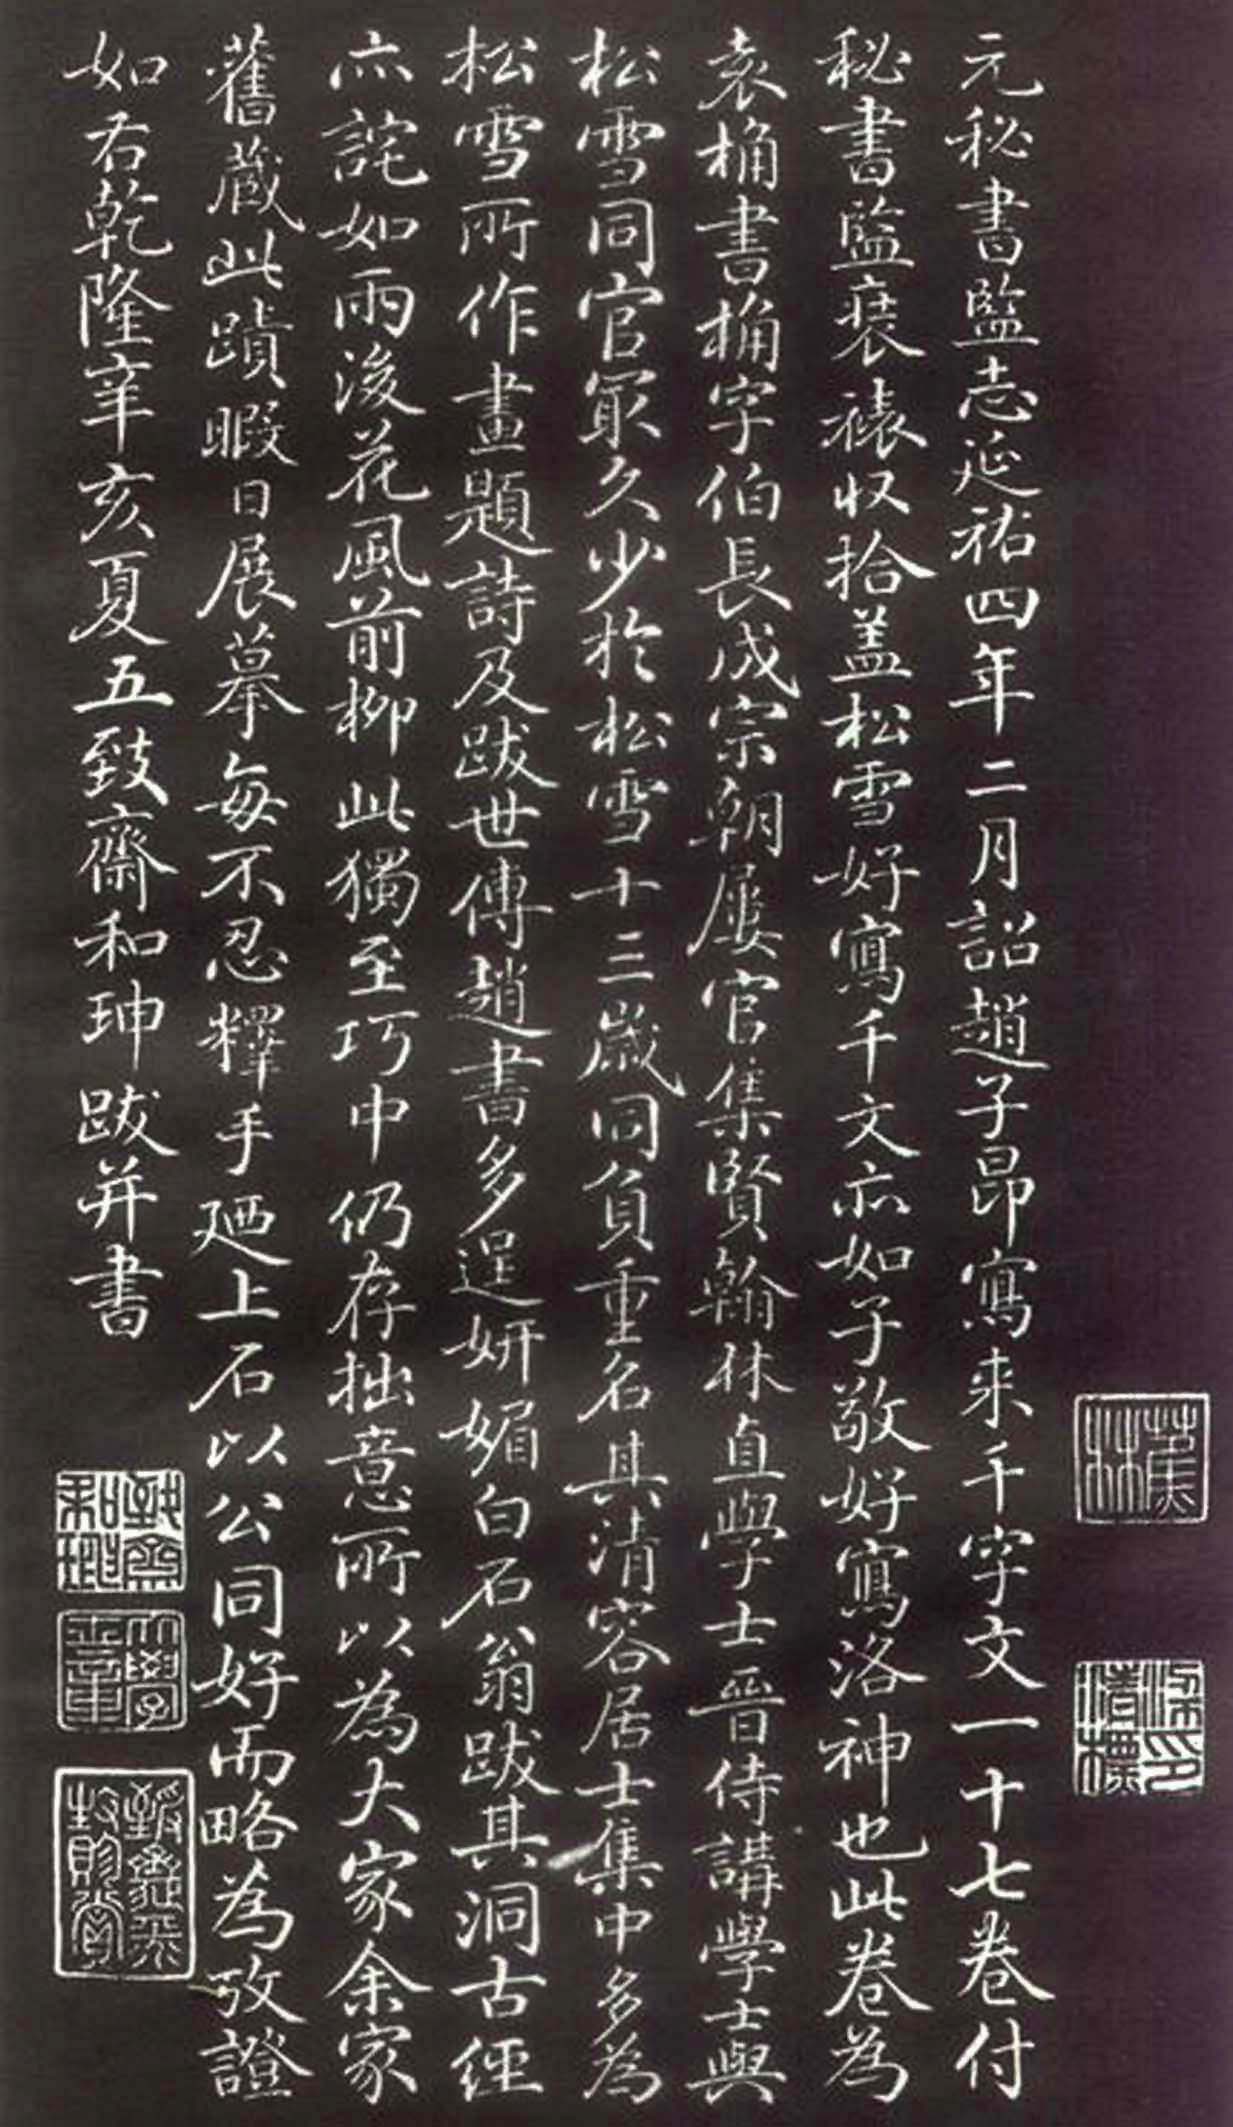 元秘書監志延祐四年二月詔趙子昂寫来千字文一十七卷付
秘書監裱褙収拾盖松雪好寫千文亦如子敬好寫洛神也此卷為
袁桷書桷字伯長成宗朝屢官集賢翰林直學士晉侍講學士與
松雪同官最久少於松雪十三歲同負重名其清容居士集中多為
松雪所作畫題詩及跋世傳趙書多逞妍媚白石翁跋其洞古經
亦詫如雨後花風前柳此獨至巧中仍存拙意所以為大家余家
舊藏此蹟暇日展摹每不忍釋手廼上石以公同好而略為攷證
如右乾隆辛亥夏五致齋和珅跋并書
蕉林
致齋和珅